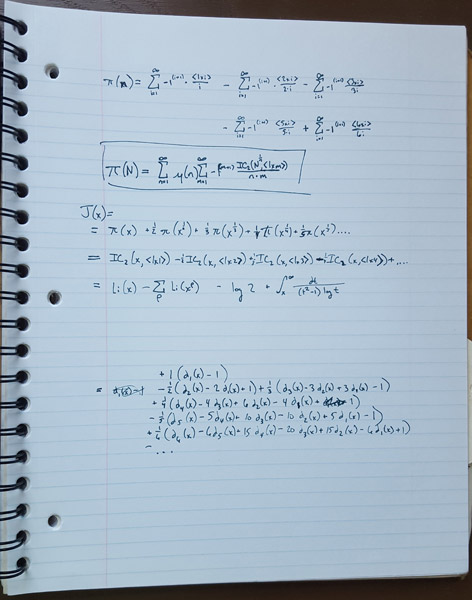 π(n) = ∑_{i=1}^∞ -1^{(i+1)} · <1xi>/i - ∑_{i=1}^∞ -1^{(i+1)} · <2xi>/2·i - ∑_{i=1}^∞ -1^{(i+1)} <3xi>/3i
- ∑_{i=1}^∞ -1^{(i+1)} <5xi>/5i + ∑_{i=1}^∞ -1^{(i+1)} <6xi>/6i
π(N) = ∑_{n=1}^∞ μ(n) ∑_{m=1}^∞ -1^{(m+1)} IC_2(N^{1/n}, <1xm>)/n·m
J(x) =
= π(x) + ½ π(x^{1/2}) + ⅓ π(x^{1/3}) + ¼ π(x^{1/4}) + ⅕ π(x^{1/5}) ....
= IC_2(x, <1x1>) - IC_2(x, <1x2>) + IC_2(x, <1x3>) - IC_2(x, <1x4>) + ....
= Li(x) - ∑_ρ Li(x^ρ) - log 2 + ∫_x^∞ dt/(t²-1) log t
+ 1 (d_1(x) - 1)
= - ½ (d_2(x) - 2 d_1(x) + 1) + ⅓ (d_3(x) - 3 d_2(x) + 3 d_1(x) - 1)
+ ¼ (d_4(x) - 4 d_3(x) + 6 d_2(x) - 4 d_1(x) + 1)
- ⅕ (d_5(x) - 5 d_4(x) + 10 d_3(x) - 10 d_2(x) + 5 d_1(x) - 1)
+ ⅙ (d_6(x) - 6 d_5(x) + 15 d_4(x) - 20 d_3(x) + 15 d_2(x) - 6 d_1(x) + 1)
- ...